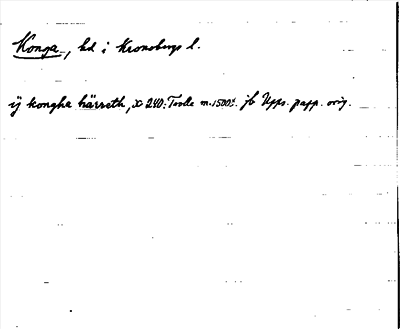 Konga, hd i Kronobergs l.
ij kongha härreth, x 240: Tolle m. 1500t. jb Upps. papp. orig.